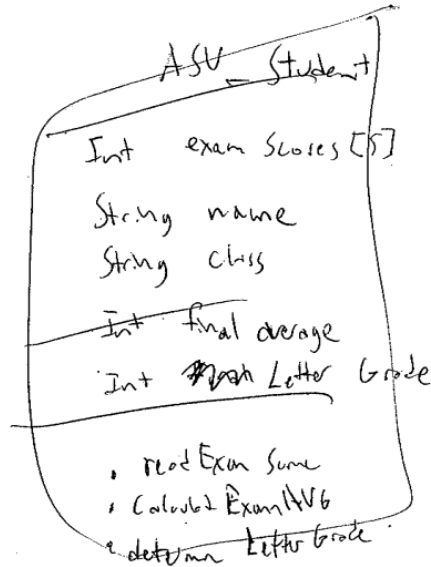 ASU_Student
Int exam Scores [5]
String name
String class
Int final average
Int Letter Grade
• read Exam Some
• Calculat ExamAVG
• determn Letter Grade